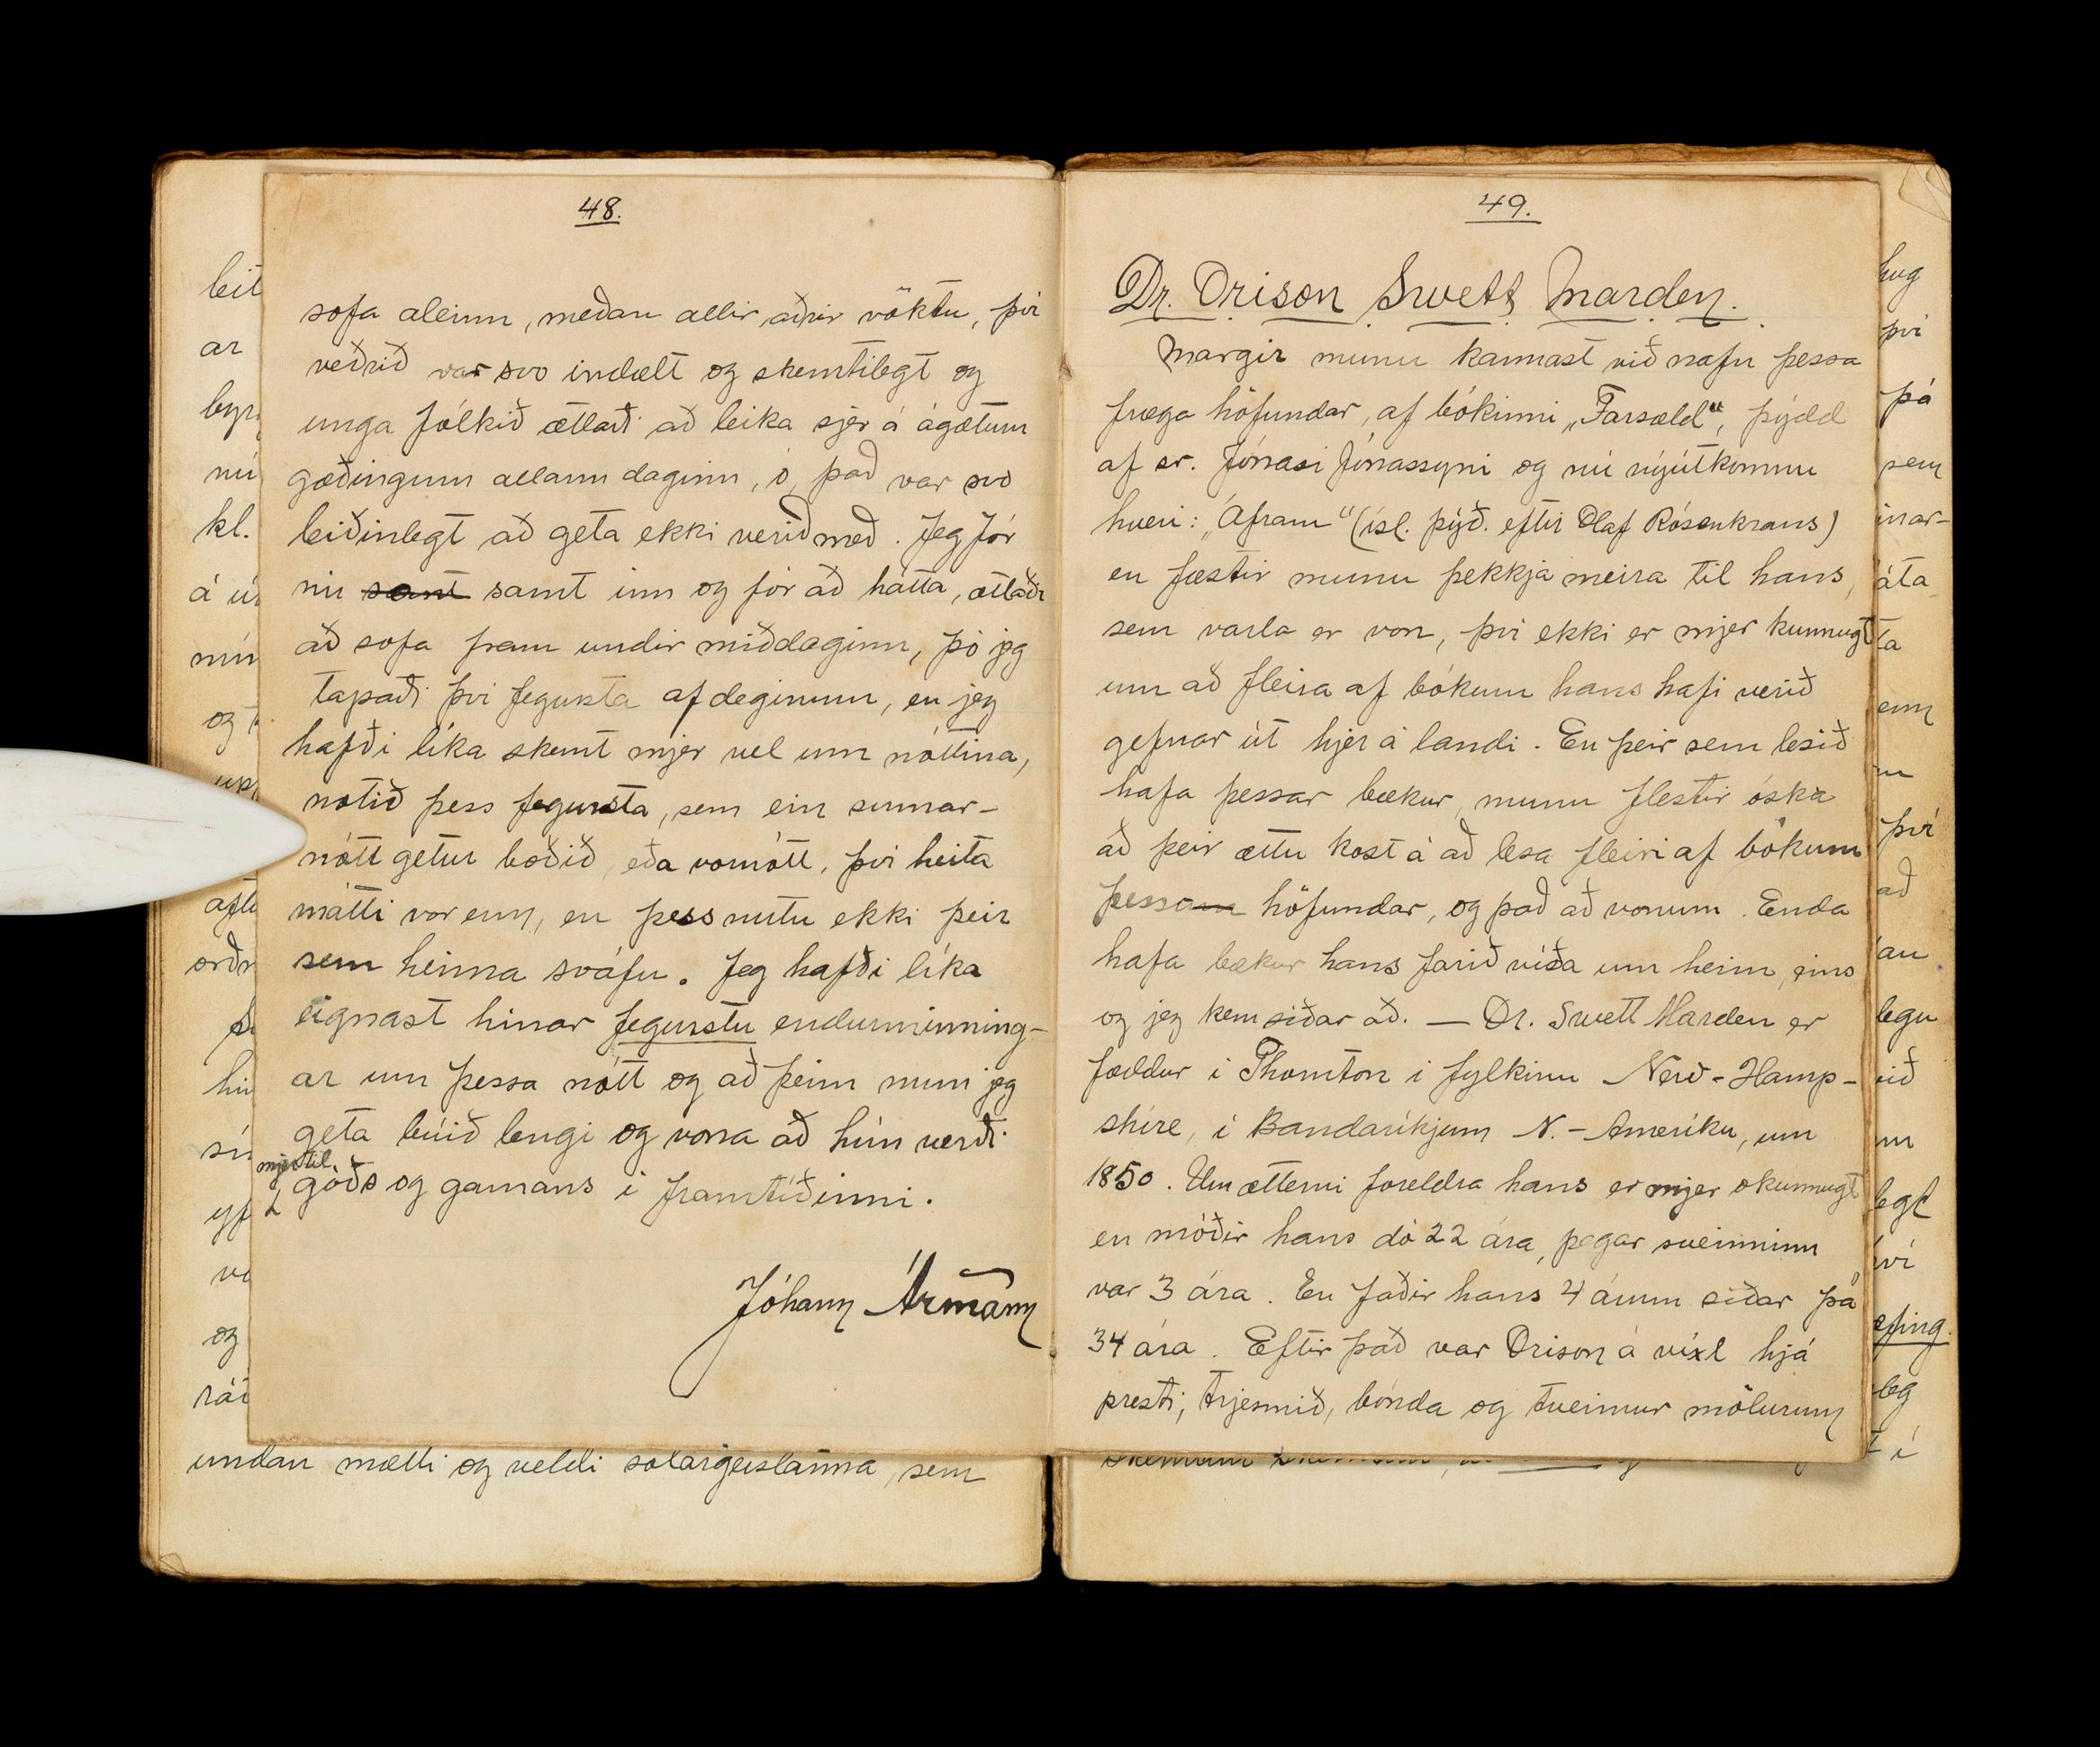 48.
sofa aleinn, meðan allir aðrir vöktu, því
veðrið var svo indælt og skemtilegt og
unga fólkið ætlaði að leika sjer á ágætum
gæðingum allann daginn, ó, það var svo
leiðinlegt að geta ekki verið með. Jeg fór
nú samt samt inn og fór að hátta, ætlaði
að sofa fram undir miðdaginn, þó jeg
tapaði því fegursta af deginum, en jeg
hafði líka skemt mjer vel um nóttina,
notið þess fegursta, sem ein sumar-
nótt getur boðið, eða vornótt, því heita
mátti vor enn, en þess nutu ekki þeir
sem heima sváfu. Jeg hafði líka
eignast hinar fegurstu endurminning-
ar um þessa nótt og að þeim mun jeg
geta búið lengi og vona að hún verði
mjer til
góðs og gamans í framtíðinni.
Jóhann Ármann
undan mætti og veldi sólargeislanna, sem
49.
Dr. Orison Swett Marden.
Margir munu kannast við nafn þessa
fræga höfundar, af bókinni „Farsæld“, þýdd
af sr. Jónasi Jónassyni og nú nýútkomnu
hveri: „Áfram“ (ísl. þýð. eftir Olaf Rósenkrans)
en fæstir munu þekkja meira til hans,
sem varla er von, því ekki er mjer kunnugt
um að fleira af bókum hans hafi verið
gefnar út hjer á landi. En þeir sem lesið
hafa þessar bækur, munu flestir óska
að þeir ættu kost á að lesa fleiri af bókum
þessa höfundar, og það að vonum. Enda
hafa bækur hans farið víða um heim, eins
og jeg kem síðar að. — Dr. Swett Marden er
fæddur í Thornton í fylkinu New-Hamp-
shire, í Bandaríkjum N.-Ameríku, um
1850. Um ætterni foreldra hans er mjer ókunnugt
en móðir hans dó 22 ára, þegar sveinninn
var 3 ára. En faðir hans 4 árum síðar þá
34 ára. Eftir það var Orison á víxl hjá
presti, trjesmið, bónda og tveimur mölurum